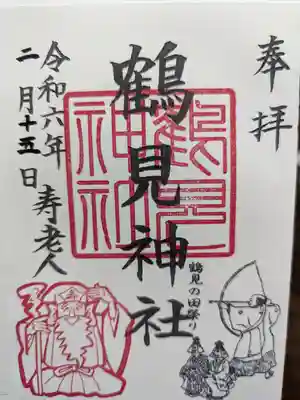 奉拝
鶴見神社
鶴見の田祭り
令和六年
二月十五日
寿老人
鶴見神社